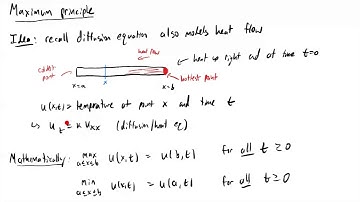 Maximum principle
Idea: recall diffusion equation also models heat flow
heat flow
heat up right end at time t=0
coldest point
hottest point
x=a
x
x=b
u(x,t) = temperature at point x and time t
↳ u_t = k u_xx (diffusion/heat eq)
Mathematically: max a≤x≤b u(x,t) = u(b,t) for all t ≥ 0
min a≤x≤b u(x,t) = u(a,t) for all t ≥ 0